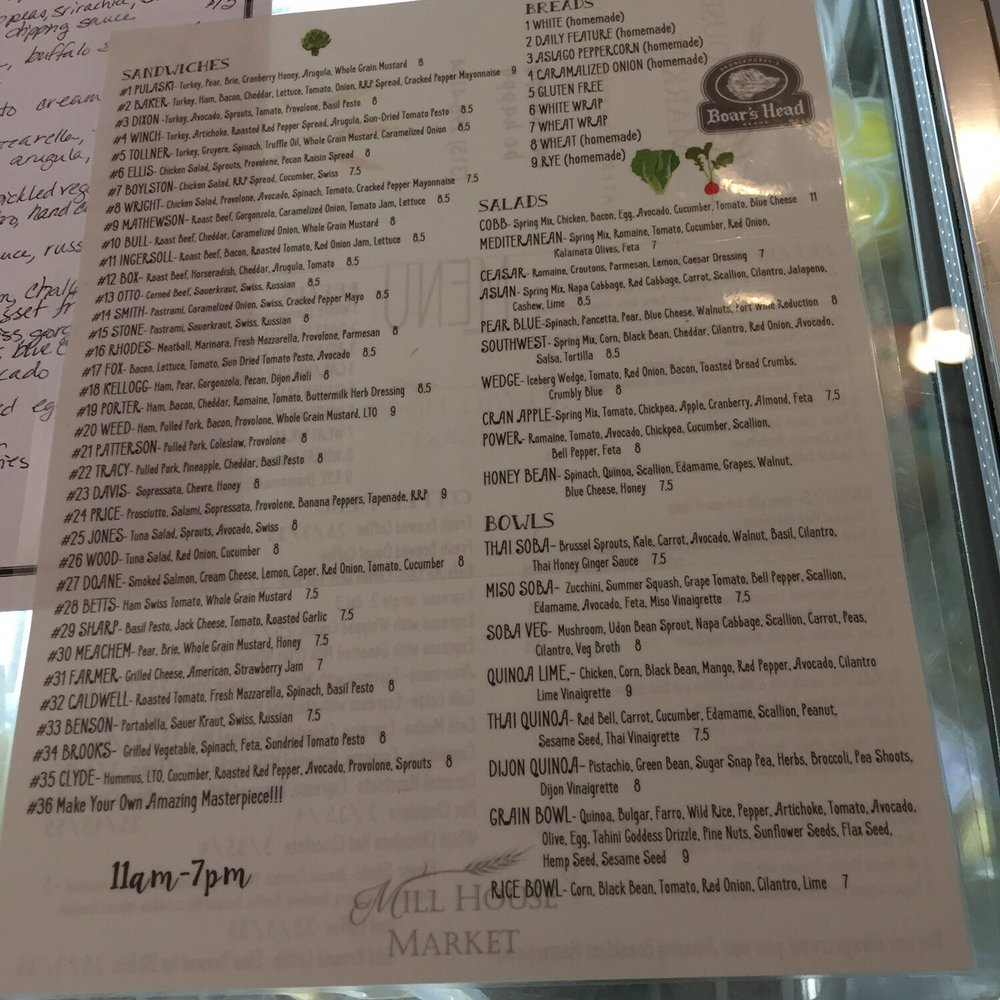 peas, sriracha,
dipping sauce
buffalo s
to cream
zzarella,
arugula,
ickled veg
uce, russ
blue c
cado
ed eg
SANDWICHES
#1 PULASKI- Turkey, Pear, Brie, Cranberry Honey, Arugula, Whole Grain Mustard 8
#2 BAKER- Turkey, Ham, Bacon, Cheddar, Lettuce, Tomato, Onion, RRP Spread, Cracked Pepper Mayonnaise 9
#3 DIXON-Turkey, Avocado, Sprouts, Tomato, Provolone, Basil Pesto 8
#4 WINCH- Turkey, Artichoke, Roasted Red Pepper Spread, Arugula, Sun-Dried Tomato Pesto 8.5
#5 TOLLNER- Turkey, Gruyere, Spinach, Truffle Oil, Whole Grain Mustard, Caramelized Onion 8.5
#6 ELLIS- Chicken Salad, Sprouts, Provolone, Pecan Raisin Spread 8
#7 BOYLSTON- Chicken Salad, RRP Spread, Cucumber, Swiss 7.5
#8 WRIGHT- Chicken Salad, Provolone, Avocado, Spinach, Tomato, Cracked Pepper Mayonnaise 7.5
#9 MATHEWSON- Roast Beef, Gorgonzola, Caramelized Onion, Tomato Jam, Lettuce 8.5
#10 BULL- Roast Beef, Cheddar, Caramelized Onion, Whole Grain Mustard 8
#11 INGERSOLL- Roast Beef, Bacon, Roasted Tomato, Red Onion Jam, Lettuce 8.5
#12 BOX- Roast Beef, Horseradish, Cheddar, Arugula, Tomato 8.5
#13 OTTO- Corned Beef, Sauerkraut, Swiss, Russian 8.5
#14 SMITH- Pastrami, Caramelized Onion, Swiss, Cracked Pepper Mayo 8.5
#15 STONE- Pastrami, Sauerkraut, Swiss, Russian 8
#16 RHODES- Meatball, Marinara, Fresh Mozzarella, Provolone, Parmesan 8
#17 FOX- Bacon, Lettuce, Tomato, Sun Dried Tomato Pesto, Avocado 8.5
#18 KELLOGG- Ham, Pear, Gorgonzola, Pecan, Dijon Aioli 8
#19 PORTER- Ham, Bacon, Cheddar, Romaine, Tomato, Buttermilk Herb Dressing 8.5
#20 WEED- Ham, Pulled Pork, Bacon, Provolone, Whole Grain Mustard, LTO 9
#21 PATTERSON- Pulled Pork, Coleslaw, Provolone 8
#22 TRACY- Pulled Pork, Pineapple, Cheddar, Basil Pesto 8
#23 DAVIS- Sopressata, Chevre, Honey 8
#24 PRICE- Prosciutto, Salami, Sopressata, Provolone, Banana Peppers, Tapenade, R.R.P 9
#25 JONES- Tuna Salad, Sprouts, Avocado, Swiss 8
#26 WOOD- Tuna Salad, Red Onion, Cucumber 8
#27 DOANE- Smoked Salmon, Cream Cheese, Lemon, Caper, Red Onion, Tomato, Cucumber 8
#28 BETTS- Ham Swiss Tomato, Whole Grain Mustard 7.5
#29 SHARP- Basil Pesto, Jack Cheese, Tomato, Roasted Garlic 7.5
#30 MEACHEM- Pear, Brie, Whole Grain Mustard, Honey 7.5
#31 FARMER- Grilled Cheese, American, Strawberry Jam 7
#32 CALDWELL- Roasted Tomato, Fresh Mozzarella, Spinach, Basil Pesto 8
#33 BENSON- Portabella, Sauer Kraut, Swiss, Russian 7.5
#34 BROOKS- Grilled Vegetable, Spinach, Feta, Sundried Tomato Pesto 8
#35 CLYDE- Hummus, LTO, Cucumber, Roasted Red Pepper, Avocado, Provolone, Sprouts 8
#36 Make Your Own Amazing Masterpiece!!!
11am-7pm
BREADS
1 WHITE (homemade)
2 DAILY FEATURE (homemade)
3 ASIAGO PEPPERCORN (homemade)
4 CARAMALIZED ONION (homemade)
5 GLUTEN FREE
6 WHITE WRAP
7 WHEAT WRAP
8 WHEAT (homemade)
9 RYE (homemade)
Boar's Head
BRAND
SALADS
COBB- Spring Mix, Chicken, Bacon, Egg, Avocado, Cucumber, Tomato, Blue Cheese 11
MEDITERANEAN- Spring Mix, Romaine, Tomato, Cucumber, Red Onion,
Kalamata Olives, Feta 7
CEASAR- Romaine, Croutons, Parmesan, Lemon, Caesar Dressing 7
ASIAN- Spring Mix, Napa Cabbage, Red Cabbage, Carrot, Scallion, Cilantro, Jalapeno,
Cashew, Lime 8.5
PEAR BLUE-Spinach, Pancetta, Pear, Blue Cheese, Walnuts, Port Wine Reduction 8
SOUTHWEST- Spring Mix, Corn, Black Bean, Cheddar, Cilantro, Red Onion, Avocado,
Salsa, Tortilla 8.5
WEDGE- Iceberg Wedge, Tomato, Red Onion, Bacon, Toasted Bread Crumbs,
Crumbly Blue 8
CRAN APPLE-Spring Mix, Tomato, Chickpea, Apple, Cranberry, Almond, Feta 7.5
POWER- Romaine, Tomato, Avocado, Chickpea, Cucumber, Scallion,
Bell Pepper, Feta 8
HONEY BEAN- Spinach, Quinoa, Scallion, Edamame, Grapes, Walnut,
Blue Cheese, Honey 7.5
BOWLS
THAI SOBA- Brussel Sprouts, Kale, Carrot, Avocado, Walnut, Basil, Cilantro,
Thai Honey Ginger Sauce 7.5
MISO SOBA- Zucchini, Summer Squash, Grape Tomato, Bell Pepper, Scallion,
Edamame, Avocado, Feta, Miso Vinaigrette 7.5
SOBA VEG- Mushroom, Udon Bean Sprout, Napa Cabbage, Scallion, Carrot, Peas,
Cilantro, Veg Broth 8
QUINOA LIME,- Chicken, Corn, Black Bean, Mango, Red Pepper, Avocado, Cilantro
Lime Vinaigrette 9
THAI QUINOA- Red Bell, Carrot, Cucumber, Edamame, Scallion, Peanut,
Sesame Seed, Thai Vinaigrette 7.5
DIJON QUINOA- Pistachio, Green Bean, Sugar Snap Pea, Herbs, Broccoli, Pea Shoots,
Dijon Vinaigrette 8
GRAIN BOWL- Quinoa, Bulgar, Farro, Wild Rice, Pepper, Artichoke, Tomato, Avocado,
Olive, Egg, Tahini Goddess Drizzle, Pine Nuts, Sunflower Seeds, Flax Seed,
Hemp Seed, Sesame Seed 9
RICE BOWL- Corn, Black Bean, Tomato, Red Onion, Cilantro, Lime 7
MILL HOUSE
MARKET